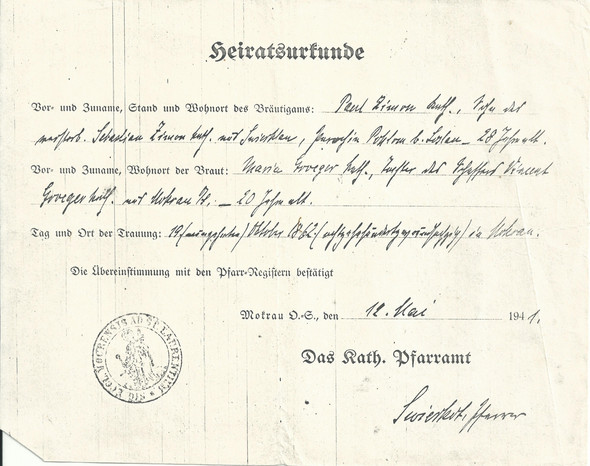 Heiratsurkunde
Vor- und Zuname, Stand und Wohnort des Bräutigams: Paul Zimon kath., Sohn des
verstorb. Sebastian Zimon kath. aus Swierklan, Parochia b. Loslau – 28 Jahr alt.
Vor- und Zuname, Wohnort der Braut: Maria Groeger kath., Tochter des Schaffers Vincent
Groeger kath. aus Mokrau – 20 Jahr alt.
Tag und Ort der Trauung: 19 (neunzehnten) Oktober 1862 (achtzehnhundertzweiundsechzig) in Mokrau.
Die Übereinstimmung mit den Pfarr-Registern bestätigt
Mokrau O.-S., den 12. Mai 1941.
Das Kath. Pfarramt
Pfarrer
SIG. ECCL. MOCRENSIS AD ST. LAURENTIUM